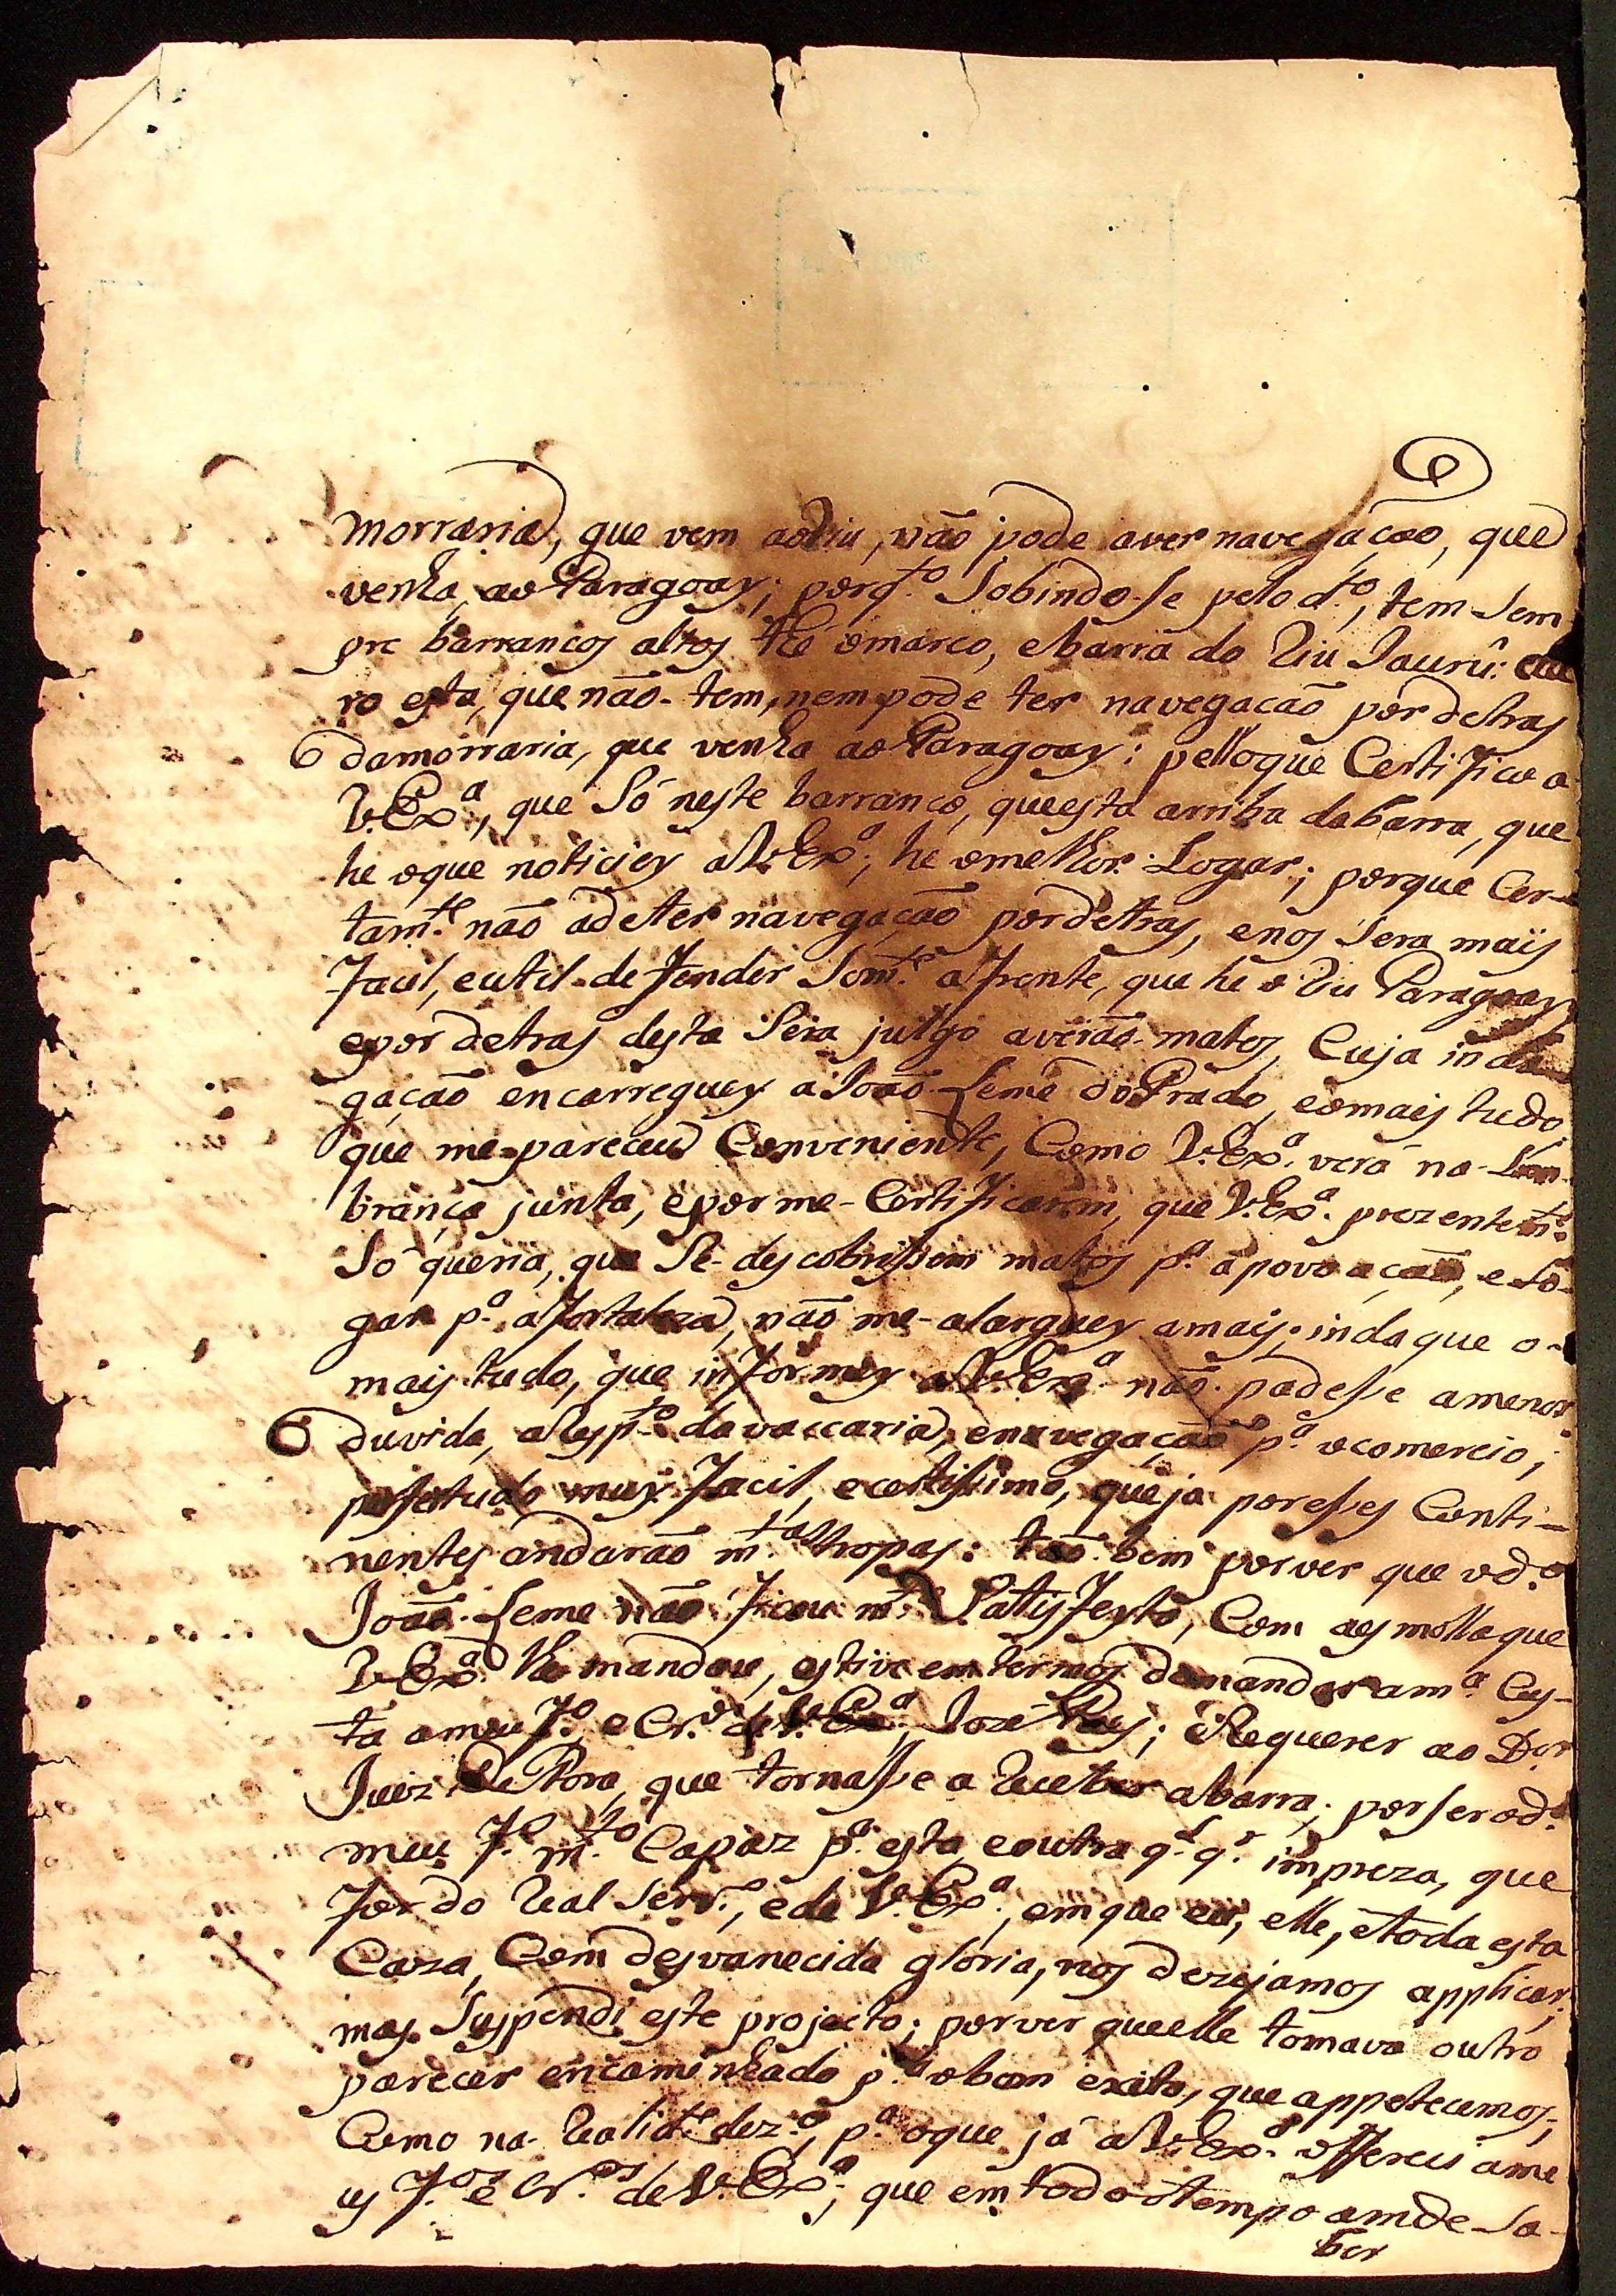 morraria, que vem ao Riu, não pode aver navegação, que
venha ao Paragoay; porq.to Sobindo-se pelo d.o, tem Sem
pre barrancos altos the o marco, e barra do Riu Jaurû:
ro esta, que não-tem, nem pode ter navegacão por detras
da morraria, que venha ao Paragoay: pelloque Certifico a
V.Ex.a, que Só neste barranco, que esta arriba da barra, que
he oque noticiey a V.Ex.a, he omelhor Logar; porque Cer-
tam.te não ade ter navegação pordetras, enos Sera maÿs
facil, eutil defender Som.te a frente, que he o Riu Paragoay
epor detras desta Sera julgo averão matos, Cuja inda
gação encarreguey a João Leme do Prado, eomais tudo
que me-pareceu Conveniente, Como V.Ex.a verá na Lem
brança junta, epor me-Certificarem, que V.Ex.a prezentem.te
Só queria, que Se-descobrissem matos p.a a povoação, e Lo-
gar p.a a fortaleza, não me-alarguey amais; indaque o-
mais tudo, que informey a V.Ex.a não padesse amenor
duvida, a Resp.to da vaccaria, enavegação p.a ocomercio;
tudo muy facil, ecertissimo, queja poresses Conti-
nentes andarão m.tas tropas: tão bem porver que od.o
João Leme não ficou m.to Satisfeyto, Com aesmolla que
V.Ex.a lhe mandou, estive em termos demandar am.a Cus-
ta ameu f.o e Cr.o de V.Ex.a, Joze Paes; Requerer ao D.or
Juiz De Fora, que tornasse a Receber abarra; porser od.o
meu f.o m.to Capaz p.a esta, eoutra q.l q.r impreza, que
for do Real Serv.o, ede V.Ex.a, emque eu, elle, etoda esta
Caza, Com desvanecida gloria, nos dezejamos applicar;
mas Suspendi este projecto; porver queelle tomava outro
parecer encaminhado p.a obom exito, que appetecemos;
Como na-Realid.e dez.o, p.a oque já a V.Ex.a offereci ame
us f.os e Cr.os de V.Ex.a; que em todo otempo amde Sa-
ber